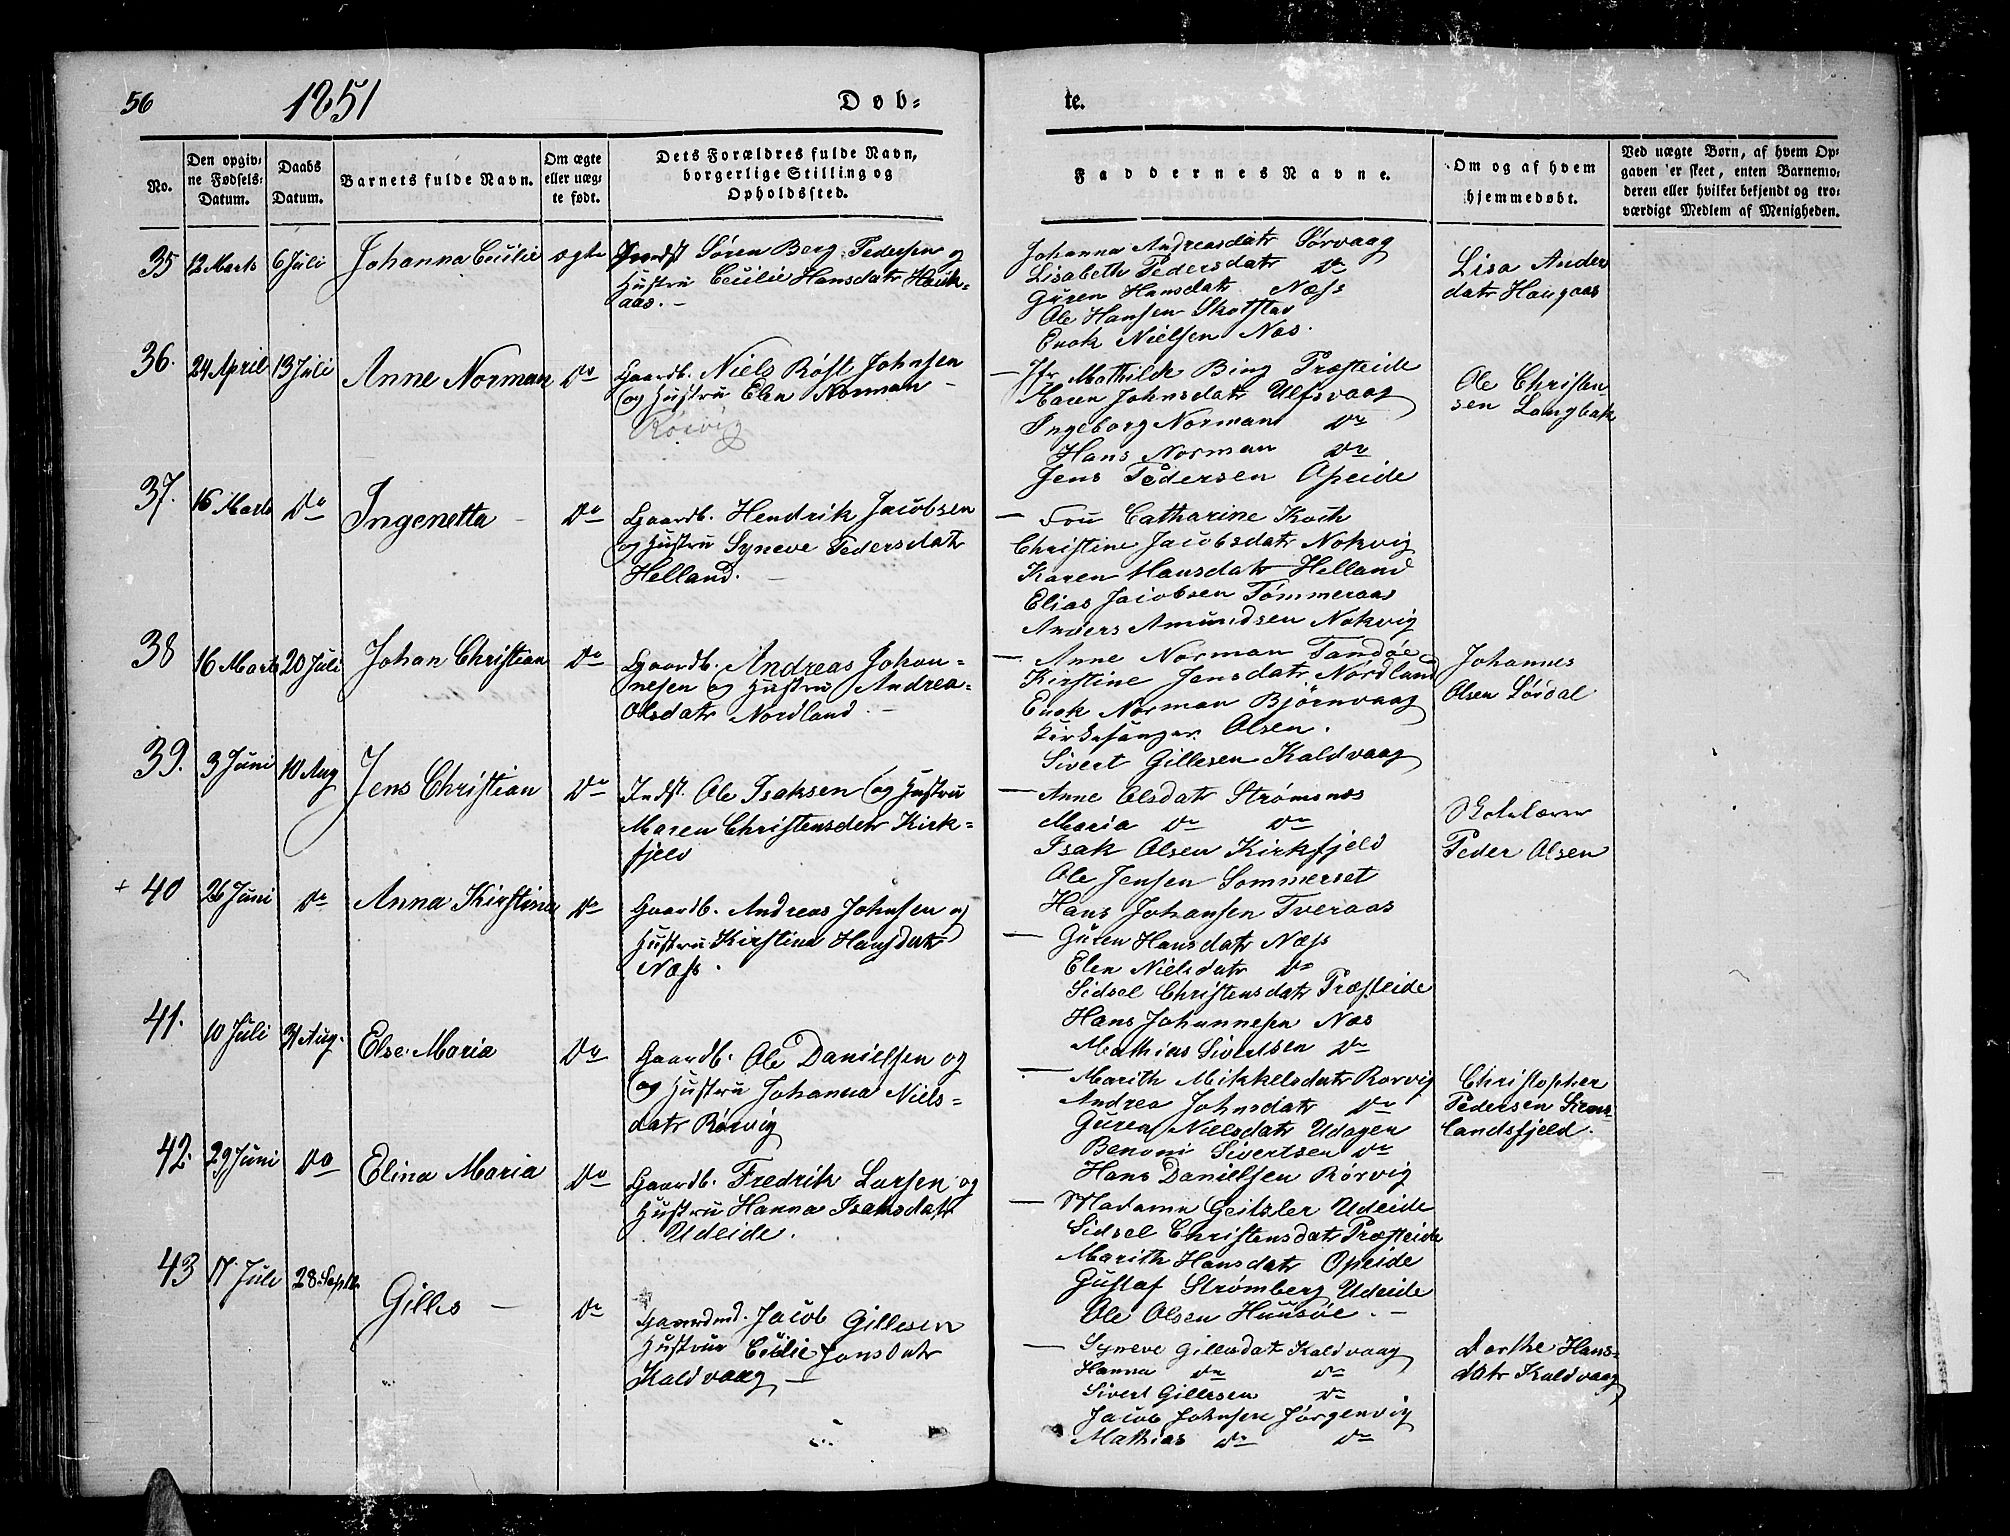 56 1851 Døb-
te.
No.
Den opgiv-
ne Fødsels-
Datum.
Daabs
Datum.
Barnets fulde Navn.
Om ægte
eller uæg-
te født.
Dets Forældres fulde Navn,
borgerlige Stilling og
Opholdssted.
Faddernes Navne.
Om og af hvem
hjemmedøbt.
Ved uægte Børn, af hvem Op-
gaven er skeet, enten Barnemo-
deren eller hvilket bekjendt og tro-
værdigt Medlem af Menigheden.
35 12 Marts 6 Juli Johanna Cecilie ægte
Indst Søren Berg Pedersen og
Hustru Cecilie Hansdatr Hauk-
aas. -
Johanna Andreasdatr Sørvaag
Lisabeth Pedersdatr Do
Guren Hansdatr Næss
Ole Hansen Skotstav
Enok Nielsen Næs.
Lisa Ander
datr Haugaas
36. 24 April 13 Juli Anne Norman Do
Gaardb. Niels Røst Johnsen
og Hustru Elen Norman -
Rørvig
- Jfr Mathilde Bing Præsteide
Maren Johnsdatr Ulfsvaag
Ingeborg Norman Do
Hans Norman Do
Jens Pedersen Opeide
Ole Christen
sen Langbak
37. 16 Marts Do Ingenetta - Do
Gaardb. Hendrik Jacobsen
og Hustru Syneve Pedersdatr
Helland. -
- Fru Catharine Koch
Christine Jacobsdatr Nokvig
Karen Hansdatr Helland
Elias Jacobsen Tømmeraas
Anders Amundsen Nokvig
38 16 Marts 20 Juli Johan Christian Do
Gaardb. Andreas Johan-
nesen og Hustru Andrea
Olsdatr Nordland. -
- Anne Norman Tandøe
Kirstine Jensdatr Nordland
Enok Norman Bjørnvaag
Kirkesanger Olsen.
Sivert Gillesen Kaldvaag
Johannes
Olsen Sørdal
39. 3 Juni 10 Aug Jens Christian Do
Indst. Ole Isaksen og Hustru
Maren Christensdatr Kirk-
fjeld
- Anne Olsdatr Strømsnæs
Maria Do Do
Isak Olsen Kirkfjeld
Ole Jensen Sommerset
Hans Johansen Tveraas
Skolelærer
Peder Olsen
+ 40 26 Juni Do Anna Kirstina Do
Gaardb. Andreas Johnsen og
Hustru Kirstina Hansdatr
Næss.
- Guren Hansdatr Næss
Elen Nielsdatr Do
Sidsel Christensdatr Præsteide
Hans Johannesen Næs
Mathias Sivertsen Do
41. 10 Juli 31 Aug. Else Maria Do
Gaardb. Ole Danielsen og
og Hustru Johanna Niels-
datr Rørvig
- Marith Mikkelsdatr Rørvig
Andrea Johnsdatr Do
Guren Nielsdatr Udagen
Benoni Sivertsen Do
Hans Danielsen Rørvig
Christopher
Pedersen
landsfjeld.
42. 29 Juni Do Elina Maria Do
Gaardb. Fredrik Larsen og
Hustru Hanna Isaksdatr
Udeide.
- Madame Geitzler Udeide
Sidsel Christensdatr Præsteide
Marith Hansdatr Opeide
Gustaf Strømberg Udeide
Ole Olsen Huusøe. -
43 17 Juli 28 Septbr Gilles - Do
Gaardmd. Jacob Gillesen
Hustrue Cecilie Jonsdatr
Kaldvaag -
- Syneve Gillesdatr Kaldvaag
Hanna Do Do
Sivert Gillesen Do
Jacob Johnsen Jørgenvig
Mathias Do Do
Dorthe Hans-
datr Kaldvaag